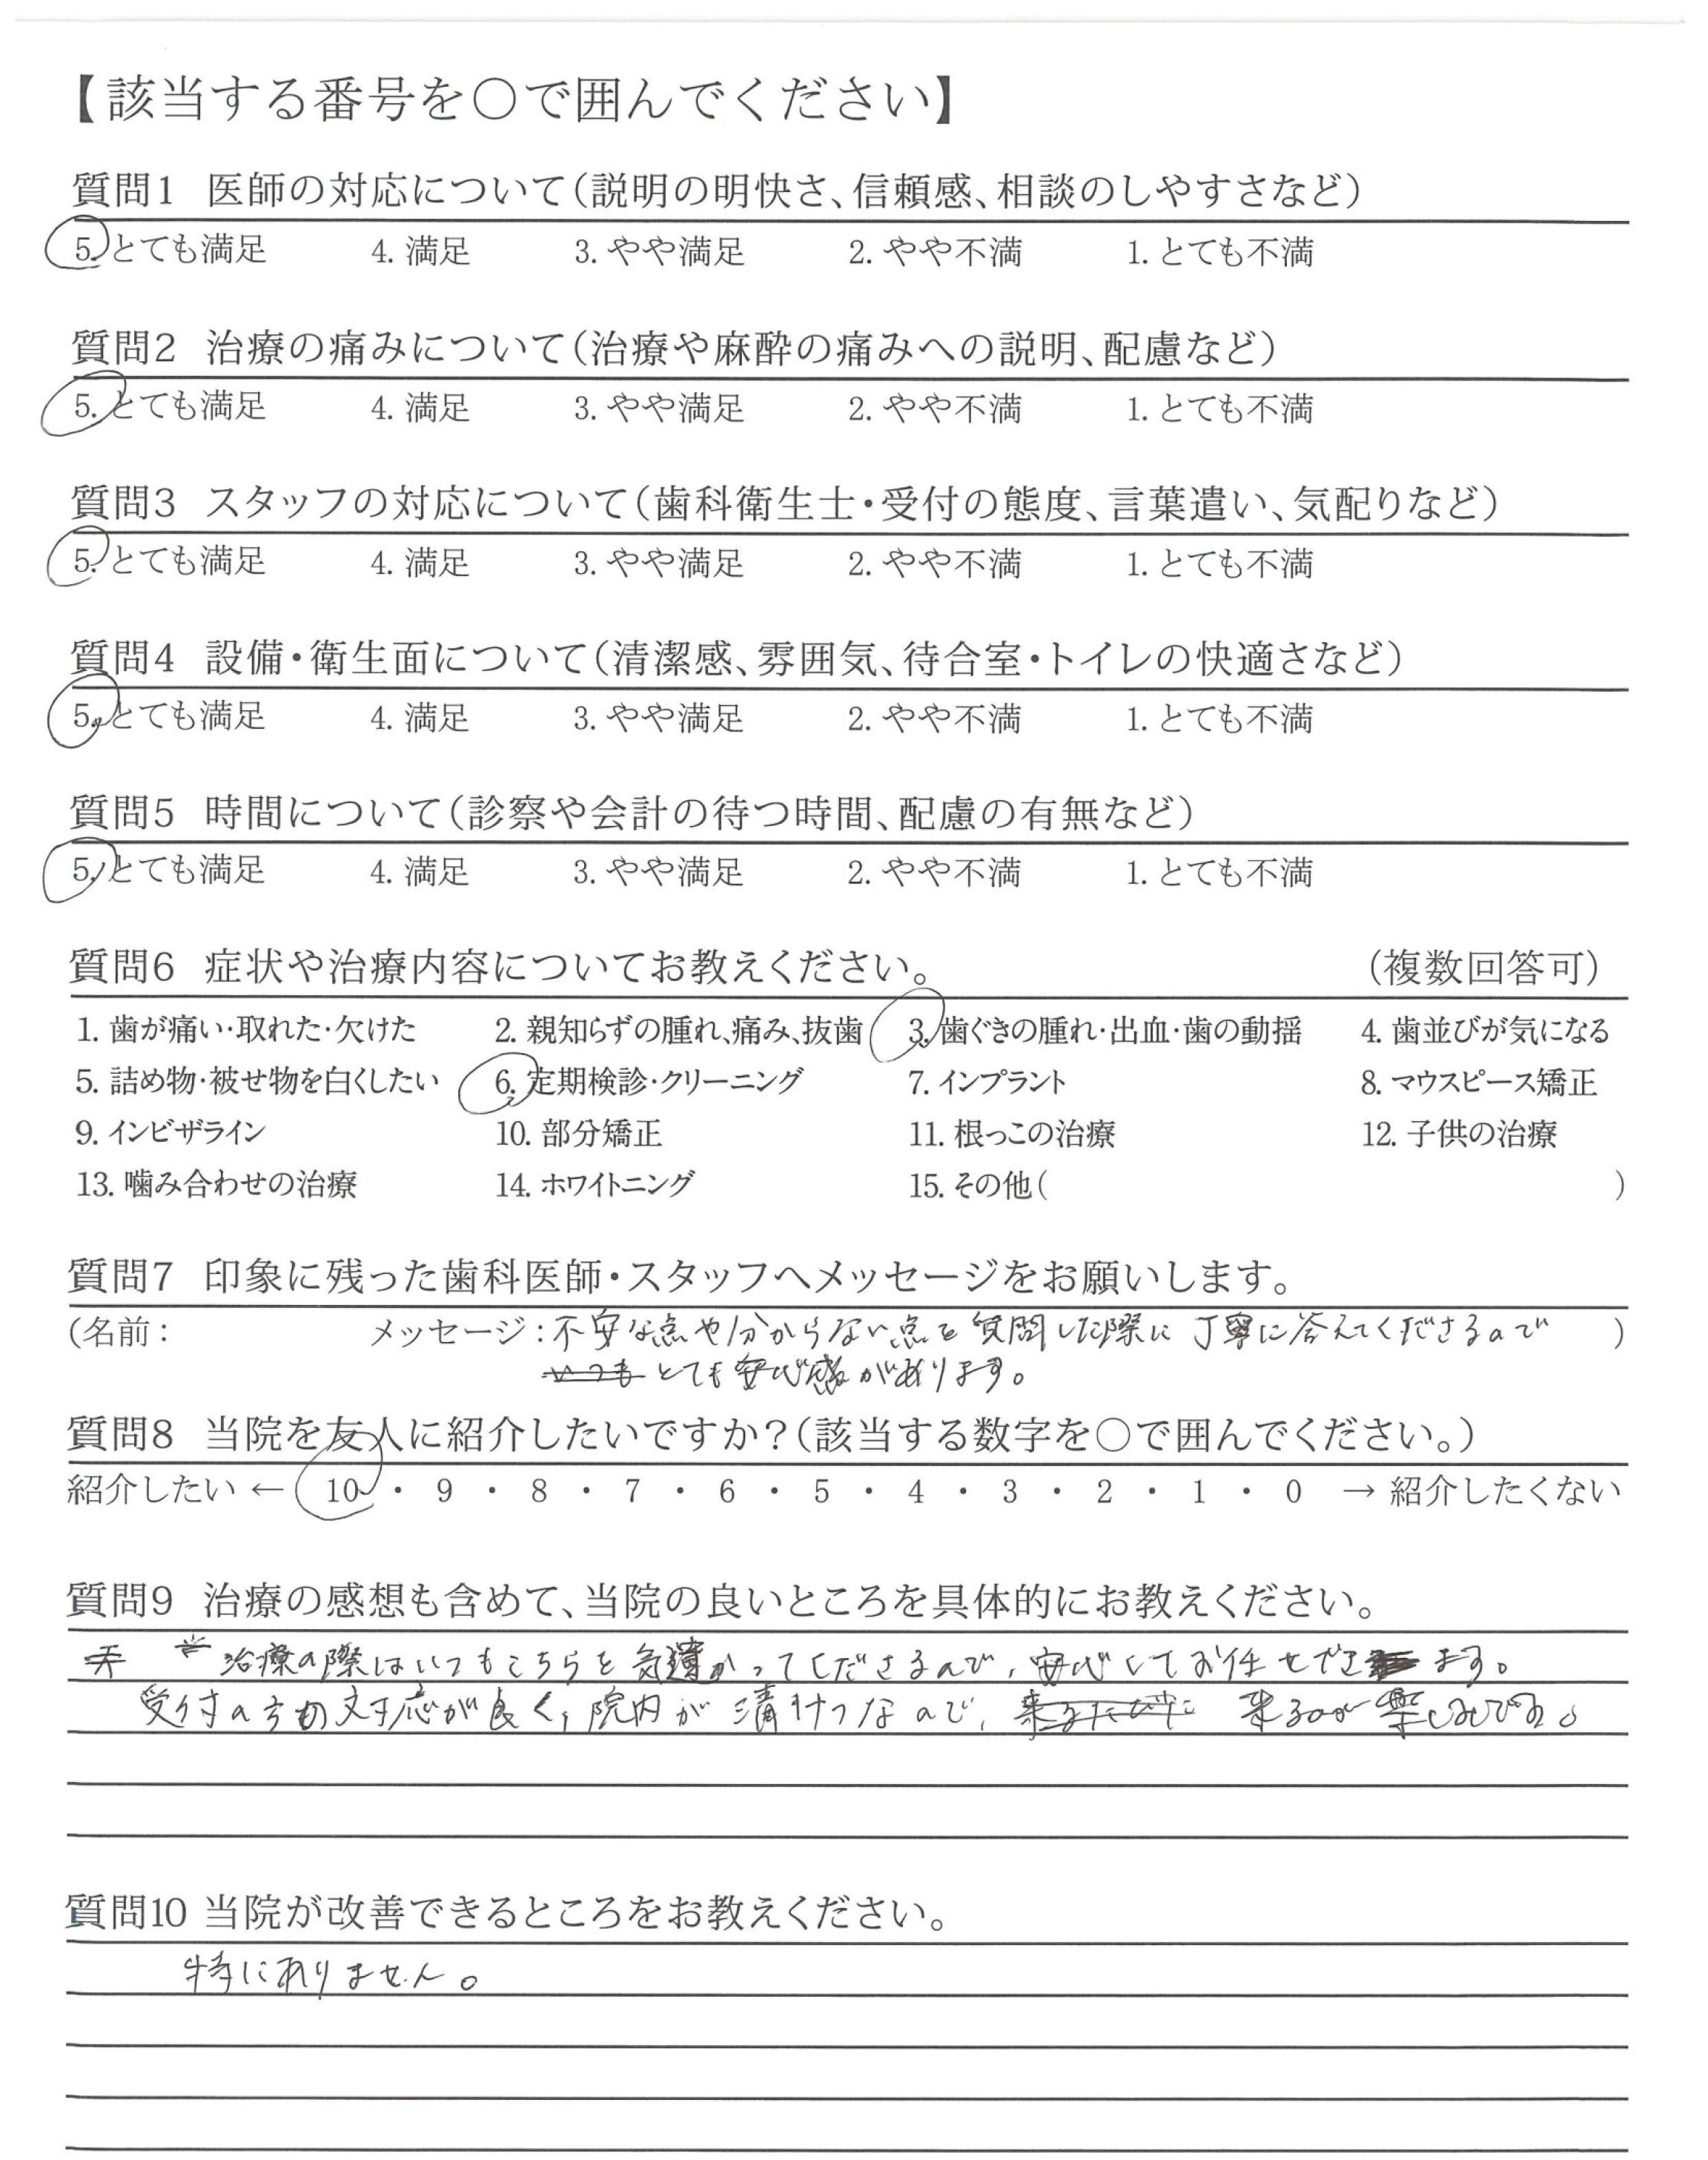 【該当する番号を○で囲んでください】
質問1 医師の対応について(説明の明快さ、信頼感、相談のしやすさなど)
5. とても満足 4. 満足 3. やや満足 2. やや不満 1. とても不満
質問2 治療の痛みについて(治療や麻酔の痛みへの説明、配慮など)
5. とても満足 4. 満足 3. やや満足 2. やや不満 1. とても不満
質問3 スタッフの対応について(歯科衛生士・受付の態度、言葉遣い、気配りなど)
5. とても満足 4. 満足 3. やや満足 2. やや不満 1. とても不満
質問4 設備・衛生面について(清潔感、雰囲気、待合室・トイレの快適さなど)
5. とても満足 4. 満足 3. やや満足 2. やや不満 1. とても不満
質問5 時間について(診察や会計の待つ時間、配慮の有無など)
5. とても満足 4. 満足 3. やや満足 2. やや不満 1. とても不満
質問6 症状や治療内容についてお教えください。 (複数回答可)
1. 歯が痛い・取れた・欠けた 2. 親知らずの腫れ、痛み、抜歯 3. 歯ぐきの腫れ・出血・歯の動揺 4. 歯並びが気になる
5. 詰め物・被せ物を白くしたい 6. 定期検診・クリーニング 7. インプラント 8. マウスピース矯正
9. インビザライン 10. 部分矯正 11. 根っこの治療 12. 子供の治療
13. 噛み合わせの治療 14. ホワイトニング 15. その他( )
質問7 印象に残った歯科医師・スタッフへメッセージをお願いします。
(名前: メッセージ:不安な点や分からない点を質問した際に丁寧に答えてくださるので )
いつも とても安心感があります。
質問8 当院を友人に紹介したいですか?(該当する数字を○で囲んでください。)
紹介したい ← 10 ・ 9 ・ 8 ・ 7 ・ 6 ・ 5 ・ 4 ・ 3 ・ 2 ・ 1 ・ 0 → 紹介したくない
質問9 治療の感想も含めて、当院の良いところを具体的にお教えください。
治療の際はいつもこちらを気遣かってくださるので、安心してお任せできます。
受付の方の対応が良く、院内が清けつなので、来るたびに 来るのが楽しみです。
質問10 当院が改善できるところをお教えください。
特にありません。